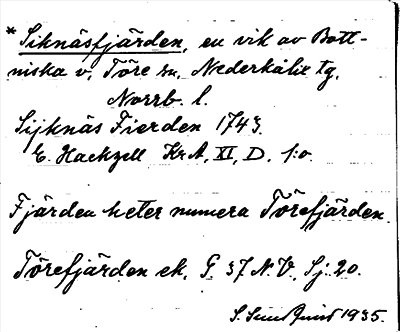 *Siknäsfjärden, en vik av Bott-
niska v, Töre sn, Nederkalix tg,
Norrb. l.
Sijknäs Fierden 1743.
E. Hackzell KrA, XI, D. 1:o
Fjärden heter numera Törefjärden
Törefjärden ek. G. 37 N.V. Sj. 20.
S. 1935.